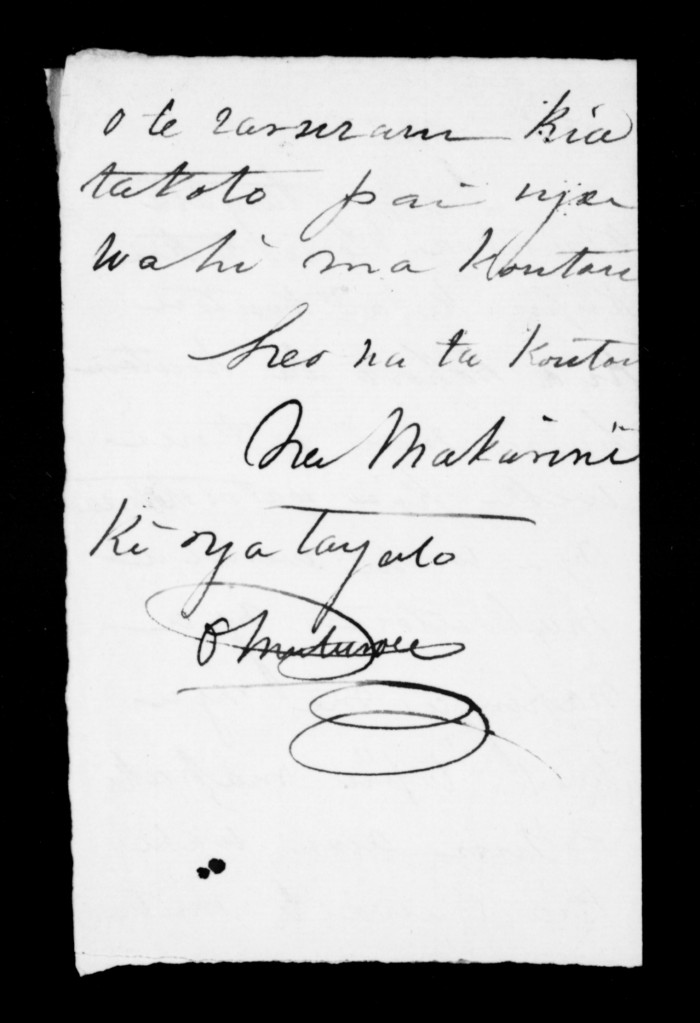 o te rawiram kia
takoto pai nga
wahi ma koutou
heo na ta koutou
Na Makarini
Ki nga tangata
O Mutuwai